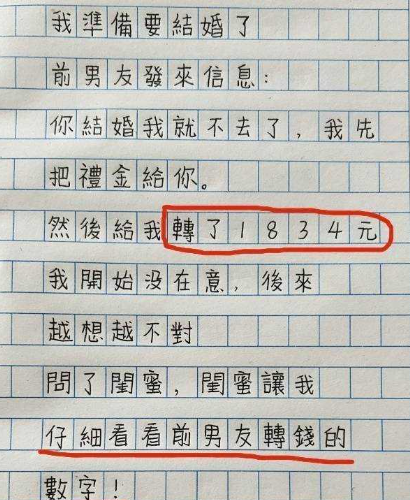 我準備要結婚了
前男友發來信息:
你結婚我就不去了,我先
把禮金給你。
然後給我轉了1834元
我開始没在意,後來
越想越不對
問了閨蜜,閨蜜讓我
仔細看看前男友轉錢的
數字!